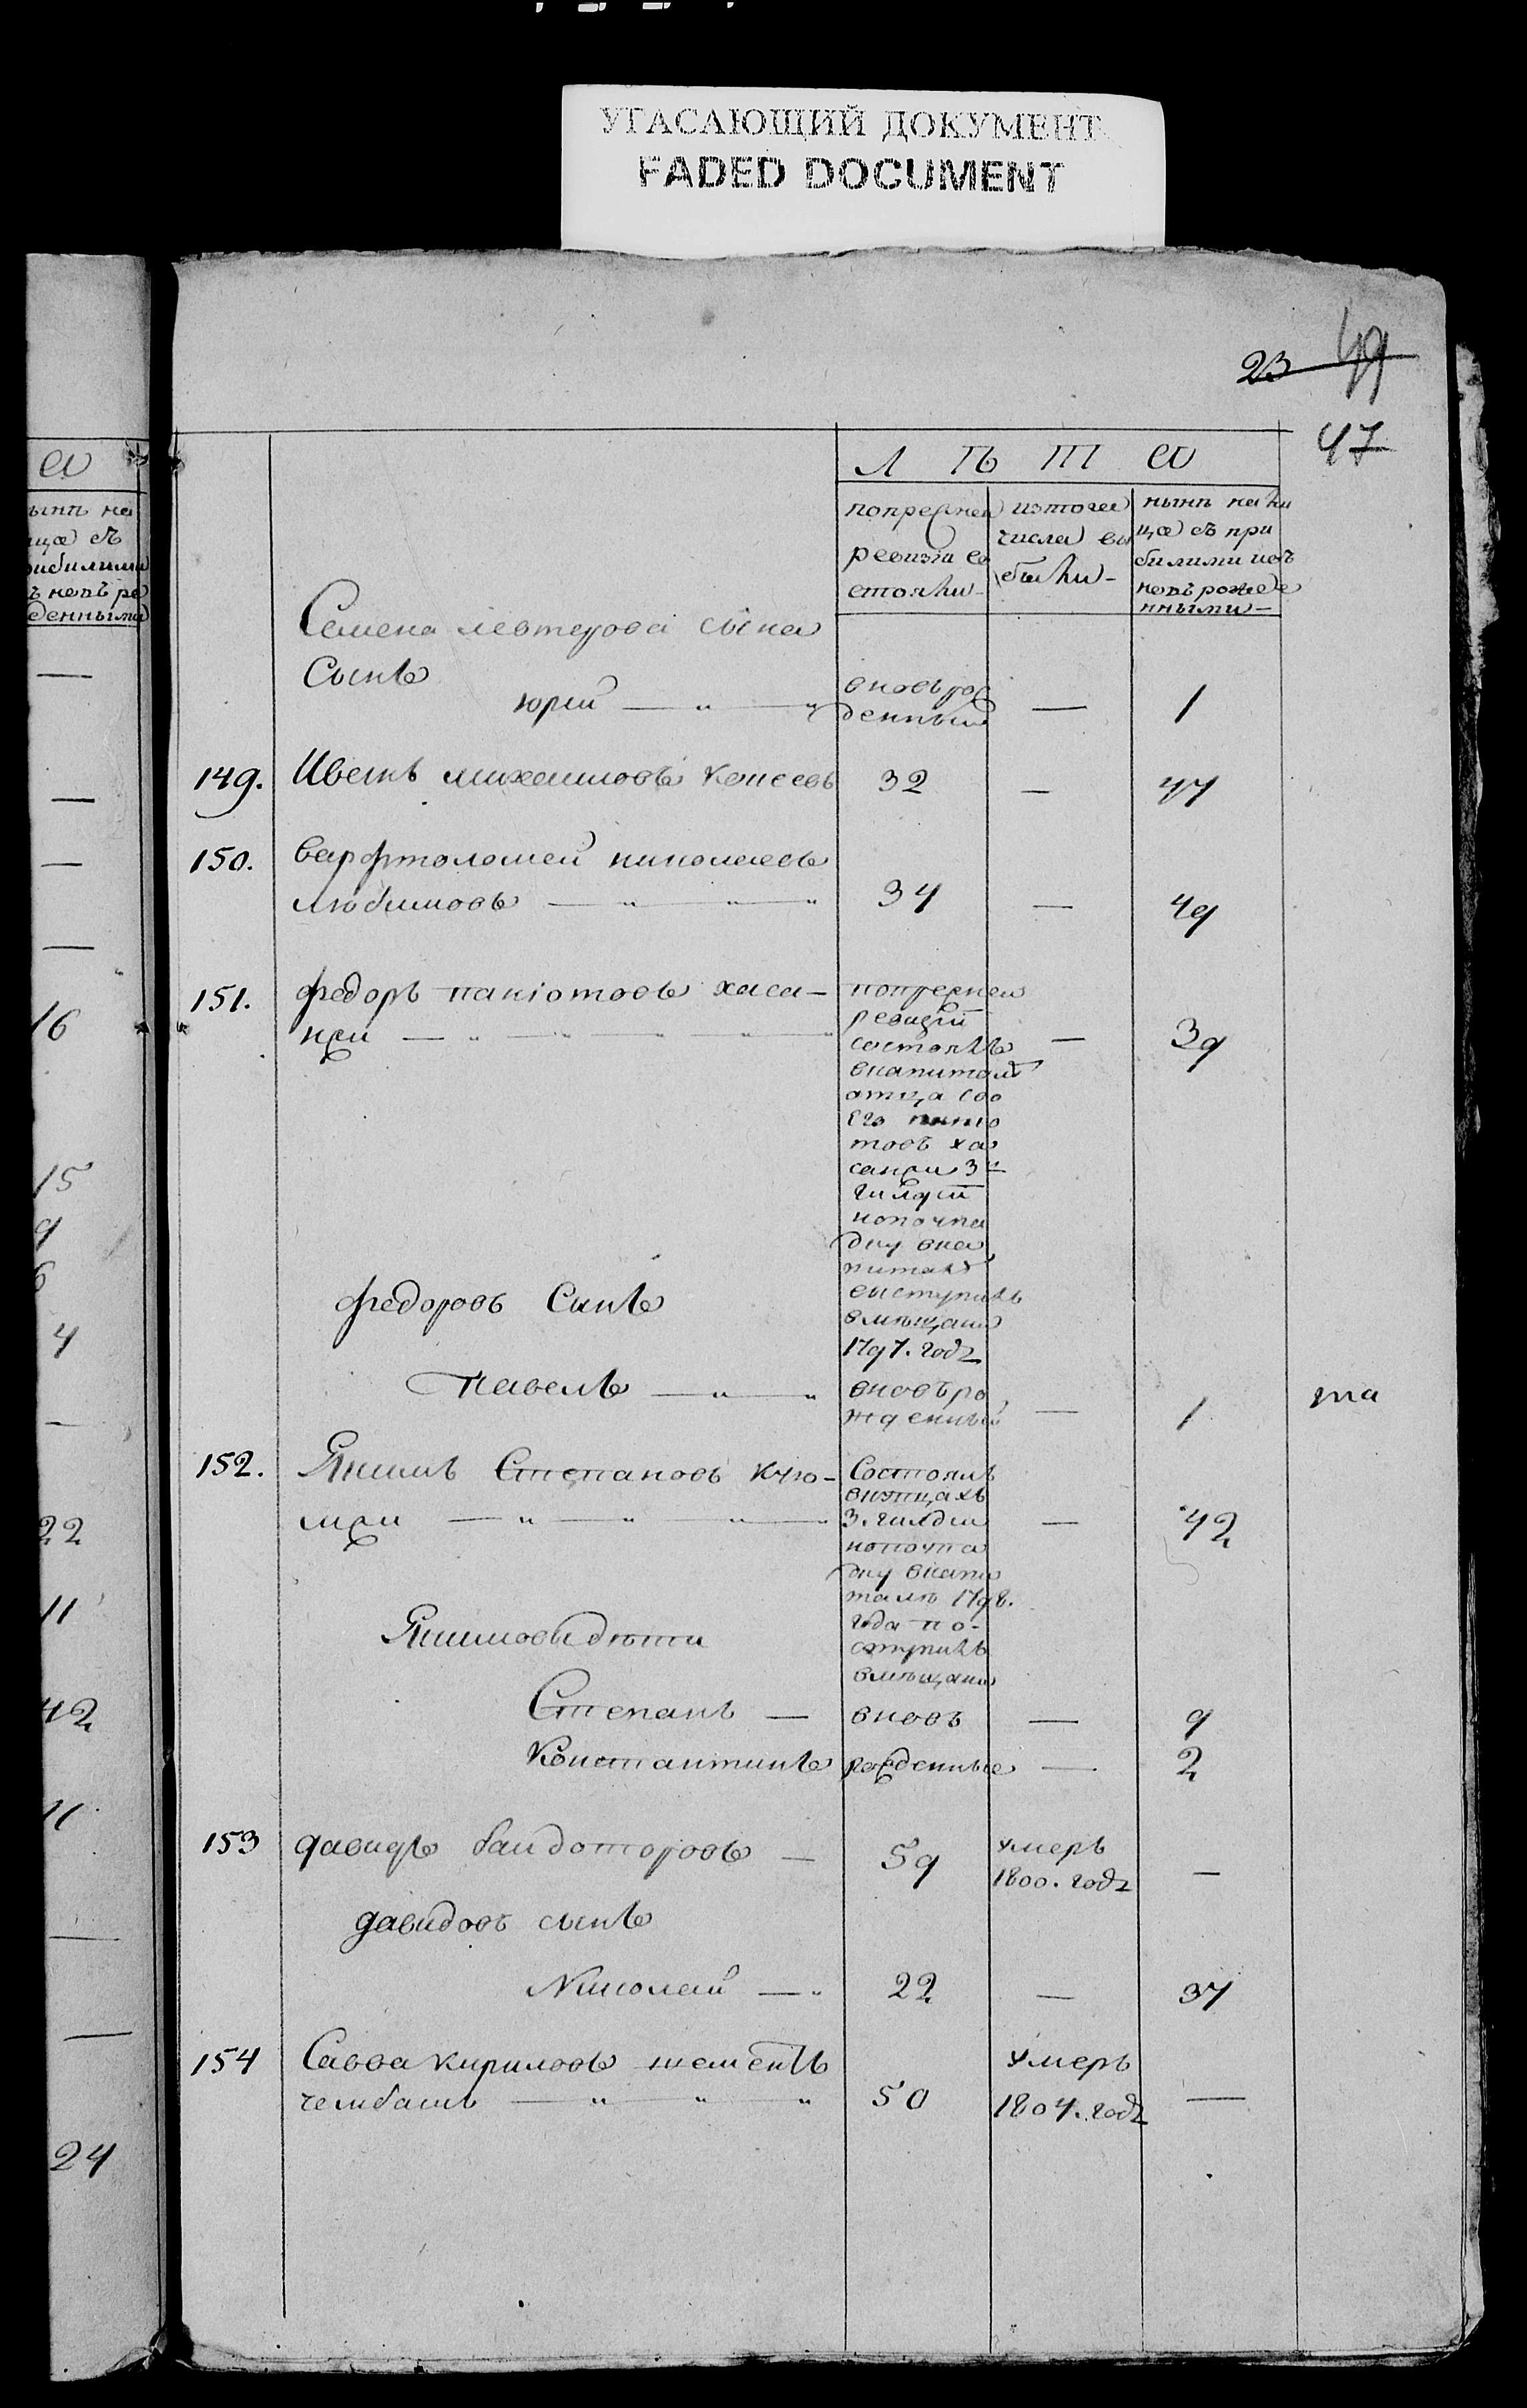 УГАСАЮЩИЙ ДОКУМЕНТ
FADED DOCUMENT
23 49
47
Л Ѣ Т А
попрежней ревизіи состояли
изтого числа выбыли
нынѣ на лицо съ прибылыми и вновь рожденными
Семена левтерова сына
Сынъ
юрий вновь рожденный — 1
149. Ивенъ михаиловъ 32 — 47
150. варфтоломей николаевъ
любимовъ 34 — 49
151. федоръ паніотовъ хаса-
нжи — 39
попрежней
ревизіи
состоялъ
вкапиталѣ
отца сво
его панио
товъ ха
санжи 3й
гилдіи
нопочпа
дку вка
питалѣ
вступилъ
вмѣщани
1797. года
федоровъ Сынъ
Павелъ вновь ро
жденный — 1
та
152. Якимъ Степановъ кую-
мжи — 42
Состоялъ
вкупцахъ
3. гилдіи
нопочпа
дку вкапи
талѣ 1798.
года по-
ступилъ
вмѣщани
Якимовы дѣти
Степанъ — вновь — 9
Константинъ рожденные — 2
153 давидъ байдоторовъ — 59 умеръ
1800. года —
давидовъ сынъ
Николай — 22 — 37
154 Савва кириловъ
чембашъ 50 умеръ
1804. года —
16
15
9
6
4
22
11
42
11
24